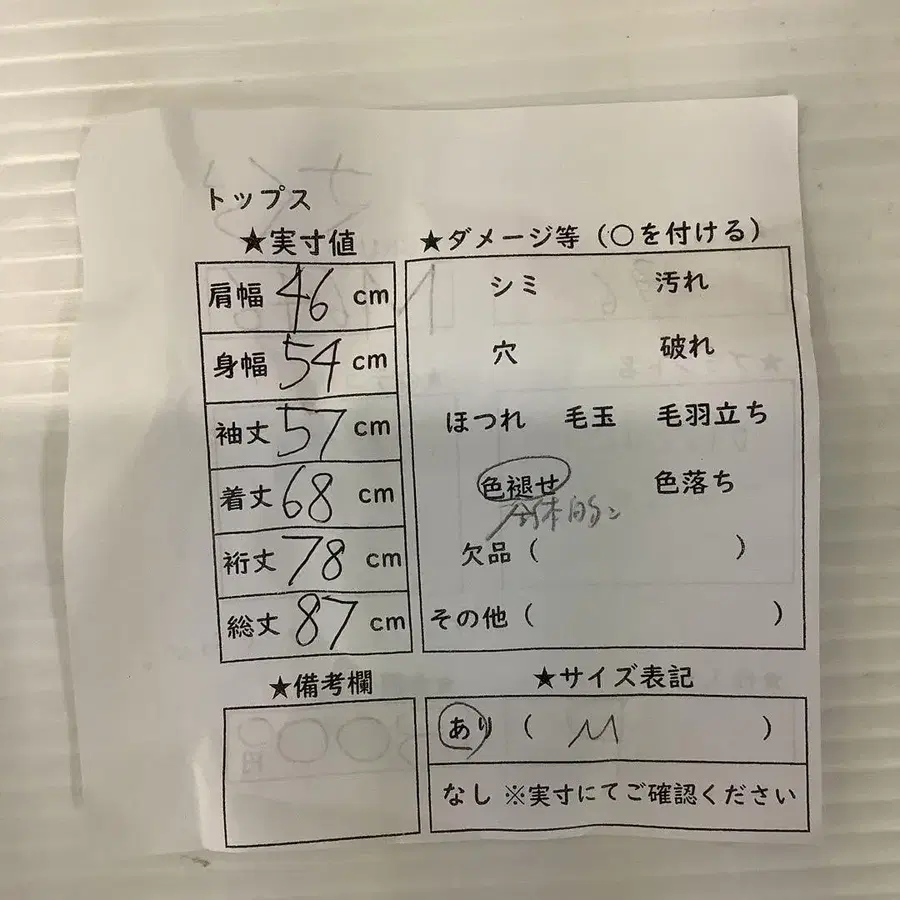 トップス
★実寸値
肩幅 46 cm
身幅 54 cm
袖丈 57 cm
着丈 68 cm
裄丈 78 cm
総丈 87 cm
★備考欄
★ダメージ等（○を付ける）
シミ 汚れ
穴 破れ
ほつれ 毛玉 毛羽立ち
色褪せ 色落ち
全体的に
欠品（ ）
その他（ ）
★サイズ表記
あり（ M ）
なし ※実寸にてご確認ください